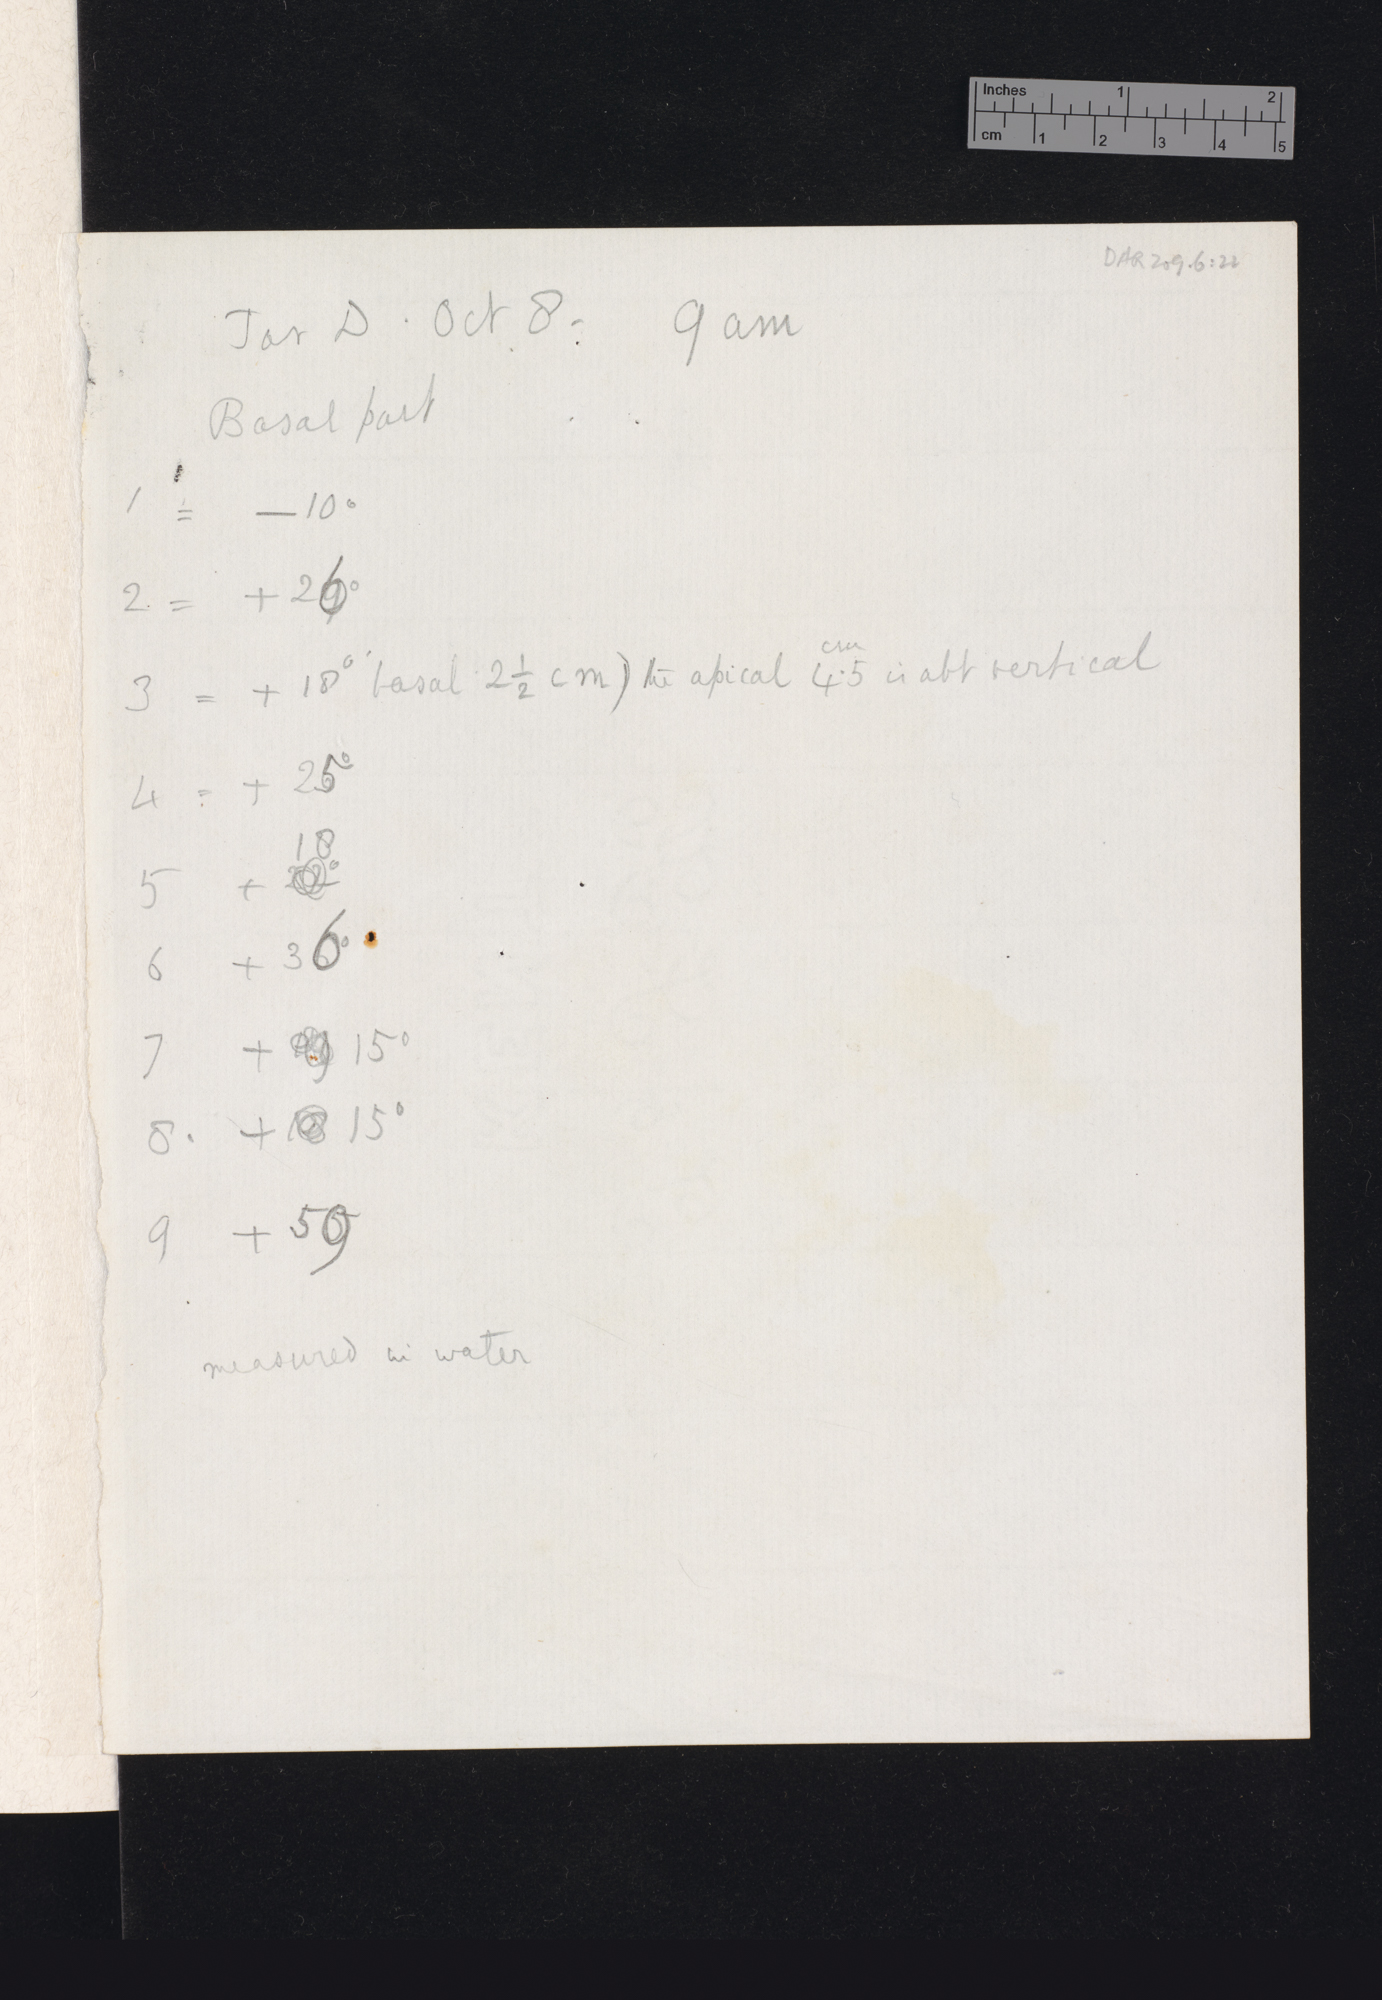 Inches 1 2
cm 1 2 3 4 5
DAR 209.6:22
Jar D. Oct 8. 9 am
Basal part
1 = —10°
2. = + 26°
3 = + 18° basal 2½ cm) the apical 4.5 cm is abt vertical
4 = + 25°
5 + 18°
6 + 36°
7 + 15°
8. + 15°
9 + 59
measured in water